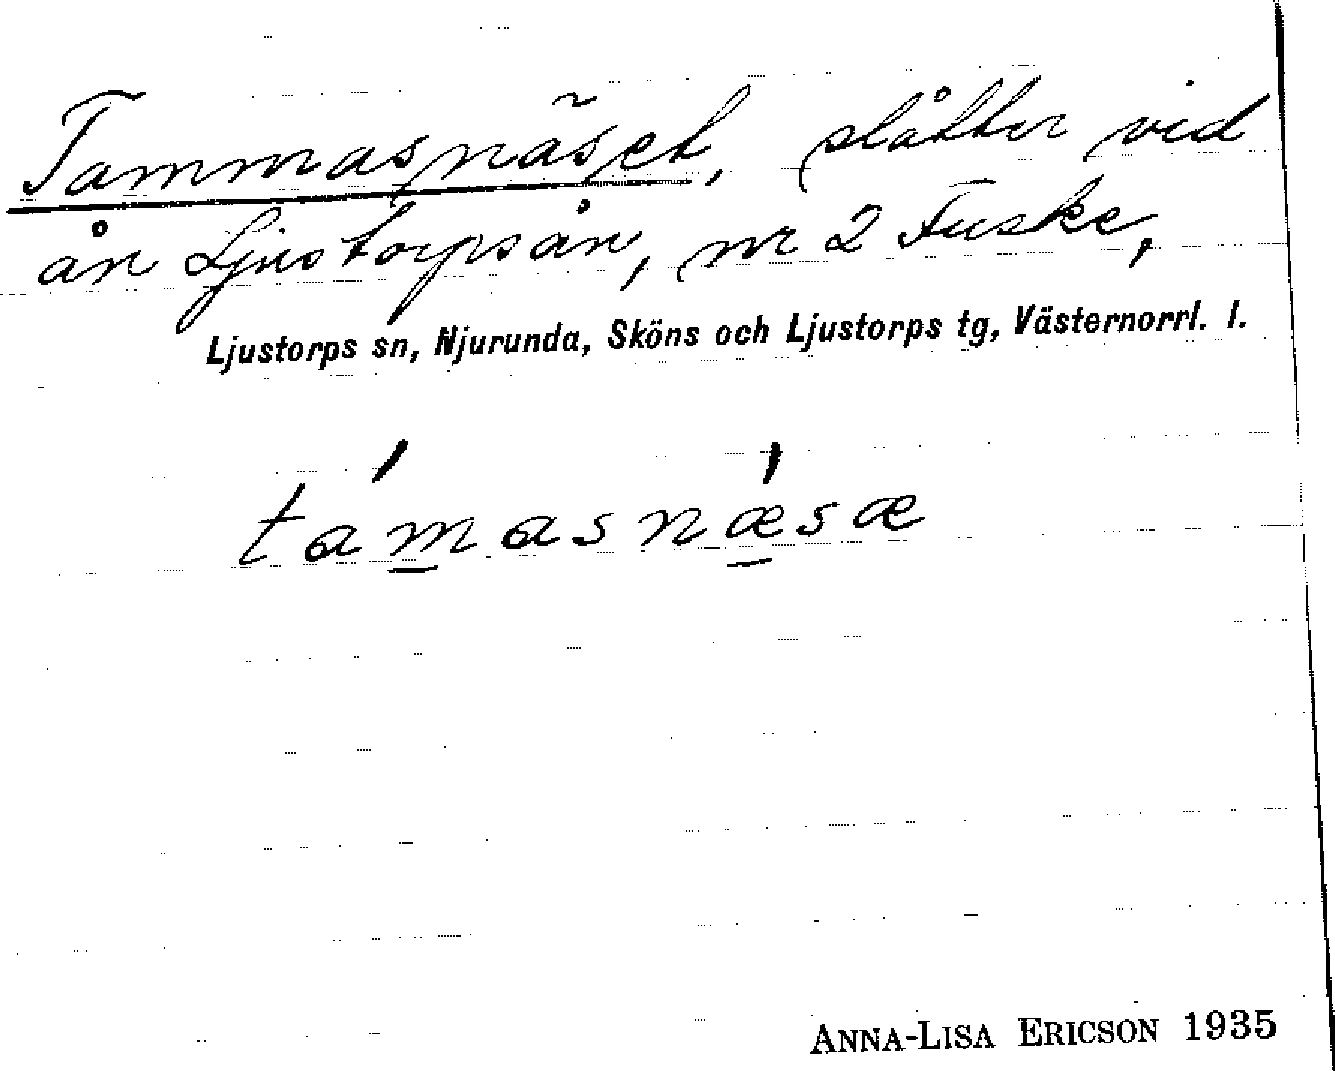 Tammasnäset, slåtter vid
ån Ljustorpsån, nr 2 Fuske,
Ljustorps sn, Njurunda, Sköns och Ljustorps tg, Västernorrl. l.
támasnǽsæ
ANNA-LISA ERICSON 1935